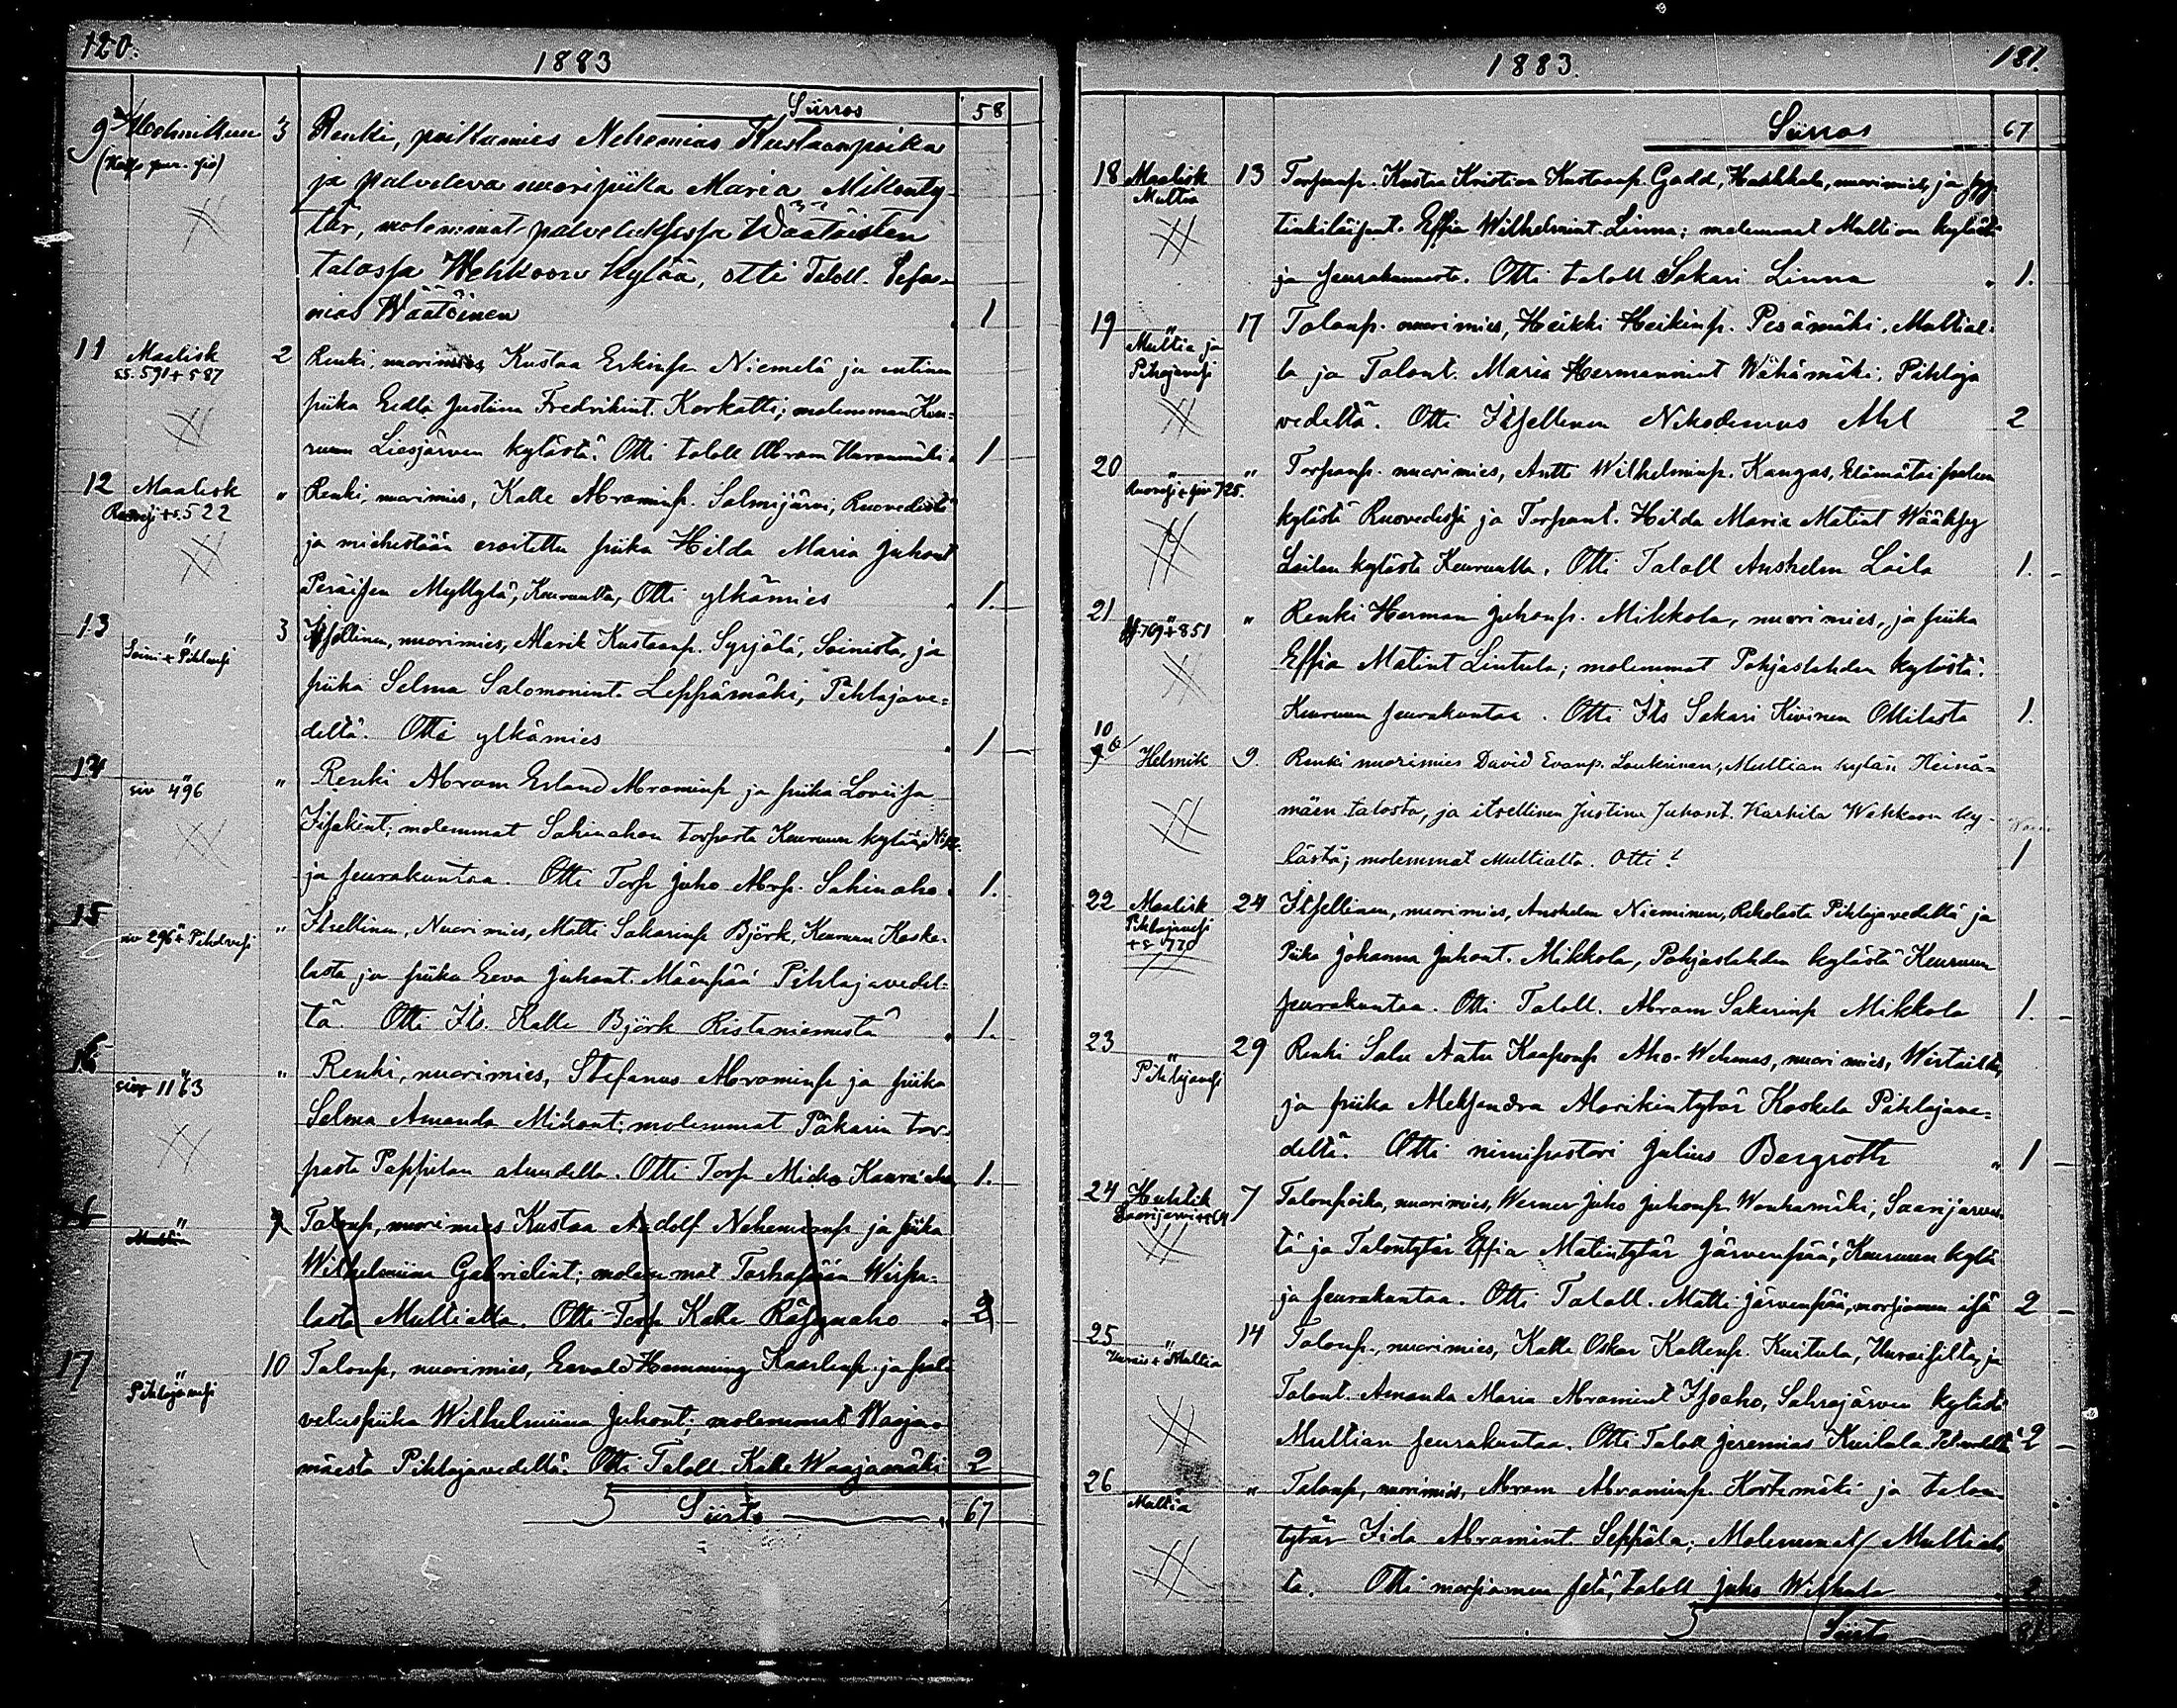 120.
1883
Siirros 58
9 Helmikuu 3 Renki, poikamies Nehemias Kustaanpoika
ja palveleva nuoripiika Maria Mikonty-
tär, molemmat palveluksessa Wäätäisten
talossa Wehkoon kylää, otti Taloll. Sefa-
nias Wäätäinen 1
11 Maalisk 2 Renki, nuorimies, Kustaa Erkinp. Niemelä ja entinen
ss. 591 + 587
piika Eedla Justiina Fredrikint. Korkatti; molemman Keu-
ruun Liesjärven kylästä. Otti taloll Abram Uuranmäki 1
12 Maalisk " Renki, nuorimies, Kalle Abraminp. Salmijärvi, Ruovedistä
Ruovesi + s. 522
ja miehestään eroitettu piika Hilda Maria Juhont
Peräisen Myllylä, Keuruulta, Otti ylkämies 1.
13 " 3 Itsellinen, nuorimies, Marik Kustaanp. Syrjälä, Soinista, ja
Soini + Pihlavesi
piika Selma Salomonint. Leppämäki, Pihlajave-
deltä. Otti ylkämies 1
14 " " Renki Abram Erland Abraminp ja piika Loviisa
siv 496
Iisakint; molemmat Sahinahon torpasta Keuruun kylää
ja seurakuntaa. Otti Torp Juho Abrp. Sahinaho 1.
15 " " Itsellinen, Nuorimies, Matti Sakarinp Björk, Keuruun Koske-
siv 296 + Pihlvesi
lasta ja piika Eeva Juhont. Mäenpää Pihlajavedel-
tä. Otti Its. Kalle Björk Ristaniemestä 1.
16 " " Renki, nuorimies, Stefanus Abraminp ja piika
siv 1163
Selma Amanda Mikont; molemmat Päkärin tor-
pasta Pappilan alueella. Otti Torp Micko 1.
" Talonp, nuorimies Kustaa Adolf Nehemianp ja piika
Multia
Wilhelmiina Gabrielint; molemmat Tarhapään Wirpa-
lasta Multialla. Otti Torp Kalle Räsynaho 2
17 " 10 Talonp, nuorimies, Eevald Hemming Kaarlenp. ja pal-
Pihlajavesi
veluspiika Wilhelmiina Juhont; molemmat Waaja-
mäestä Pihlajavedeltä. Otti Taloll. Kalle Waajamäki 2
Siirto 67
1883.
181.
Siirros 67
18 Maalisk 13 Torpanp. Kustaa Kristian Kustaanp. Gadd, Hakkala, nuorimies, ja syy-
Multia
tinkiläisent. Effia Wilhelmint. Linna; molemmat Multian kylästä
ja seurakunnasta. Otti taloll Sakari Linna 1.
19 " 17 Talonp. nuorimies, Heikki Heikinp. Pesämäki, Multial-
Multia ja
Pihlajavesi
la ja Talont. Maria Hermannint Wähämäki, Pihlaja
vedeltä. Otti Itsellinen Nikodemus Ahl 2
20 " " Torpanp. nuorimies, Antti Wilhelminp. Kangas, Elämätsi
Ruovesi + siv 725.
kylästä Ruovedissä ja Torpant. Hilda Maria Matint Wääksy
Loilan kylästä Keuruulla. Otti Taloll Anshelm Loila 1.
21 " " Renki Herman Juhonp. Mikkola, nuorimies, ja piika
ss 769 + 851
Effia Matint Lintula; molemmat Pohjaslahden kylästä
Keuruun seurakuntaa. Otti Its Sakari Kivinen Ottilasta 1.
10
Helmik 9. Renki nuorimies David Evanp. Loukiinen, Multian kylän Heinä-
mäen talosta, ja itsellinen Justina Juhont. Karhila Wehkoon ky-
lästä; molemmat Multialta. Otti ? 1
22 Maalisk 24 Itsellinen, nuorimies, Anshelm Nieminen, Rekolasta Pihlajavedeltä ja
Pihlajavesi
+ s 770
Piika Johanna Juhont. Mikkola, Pohjaslahden kylästä Keuruun
seurakuntaa. Otti Taloll. Abram Sakarinp Mikkola 1.
23 " 29 Renki Salu Aatu Kaaponp Aho-Wehmas, nuorimies, Wirtailta,
Pihlajavesi
ja piika Aleksandra Marikintytär Koskela Pihlajave-
deltä. Otti nimipastori Julius Bergroth 1
24 Huhtik 7 Talonpoika, nuorimies, Werner Juho Juhonp. Wanhamäki, Saarijärves-
Saarijärvi
tä ja Talontytär Effia Matintytär Järvenpää, Keuruun kylä
ja seurakuntaa. Otti Taloll. Matti Järvenpää, morsiamen isä 2
25 " 14 Talonp., nuorimies, Kalle Oskar Kallenp. Kuitula, Uuraisilta, ja
Uurais + Multia
Talont. Amanda Maria Abramint Isoaho, Sahrajärven kylästä
Multian seurakuntaa. Otti Taloll Jeremias Kuitula 2
26 " " Talonp, nuorimies, Abram Abraminp. Kortemäki ja talon-
Multia
tytär Iida Abramint. Seppälä, Molemmat Multial-
ta. Otti morsiamen setä, taloll Juho 2
Siirto